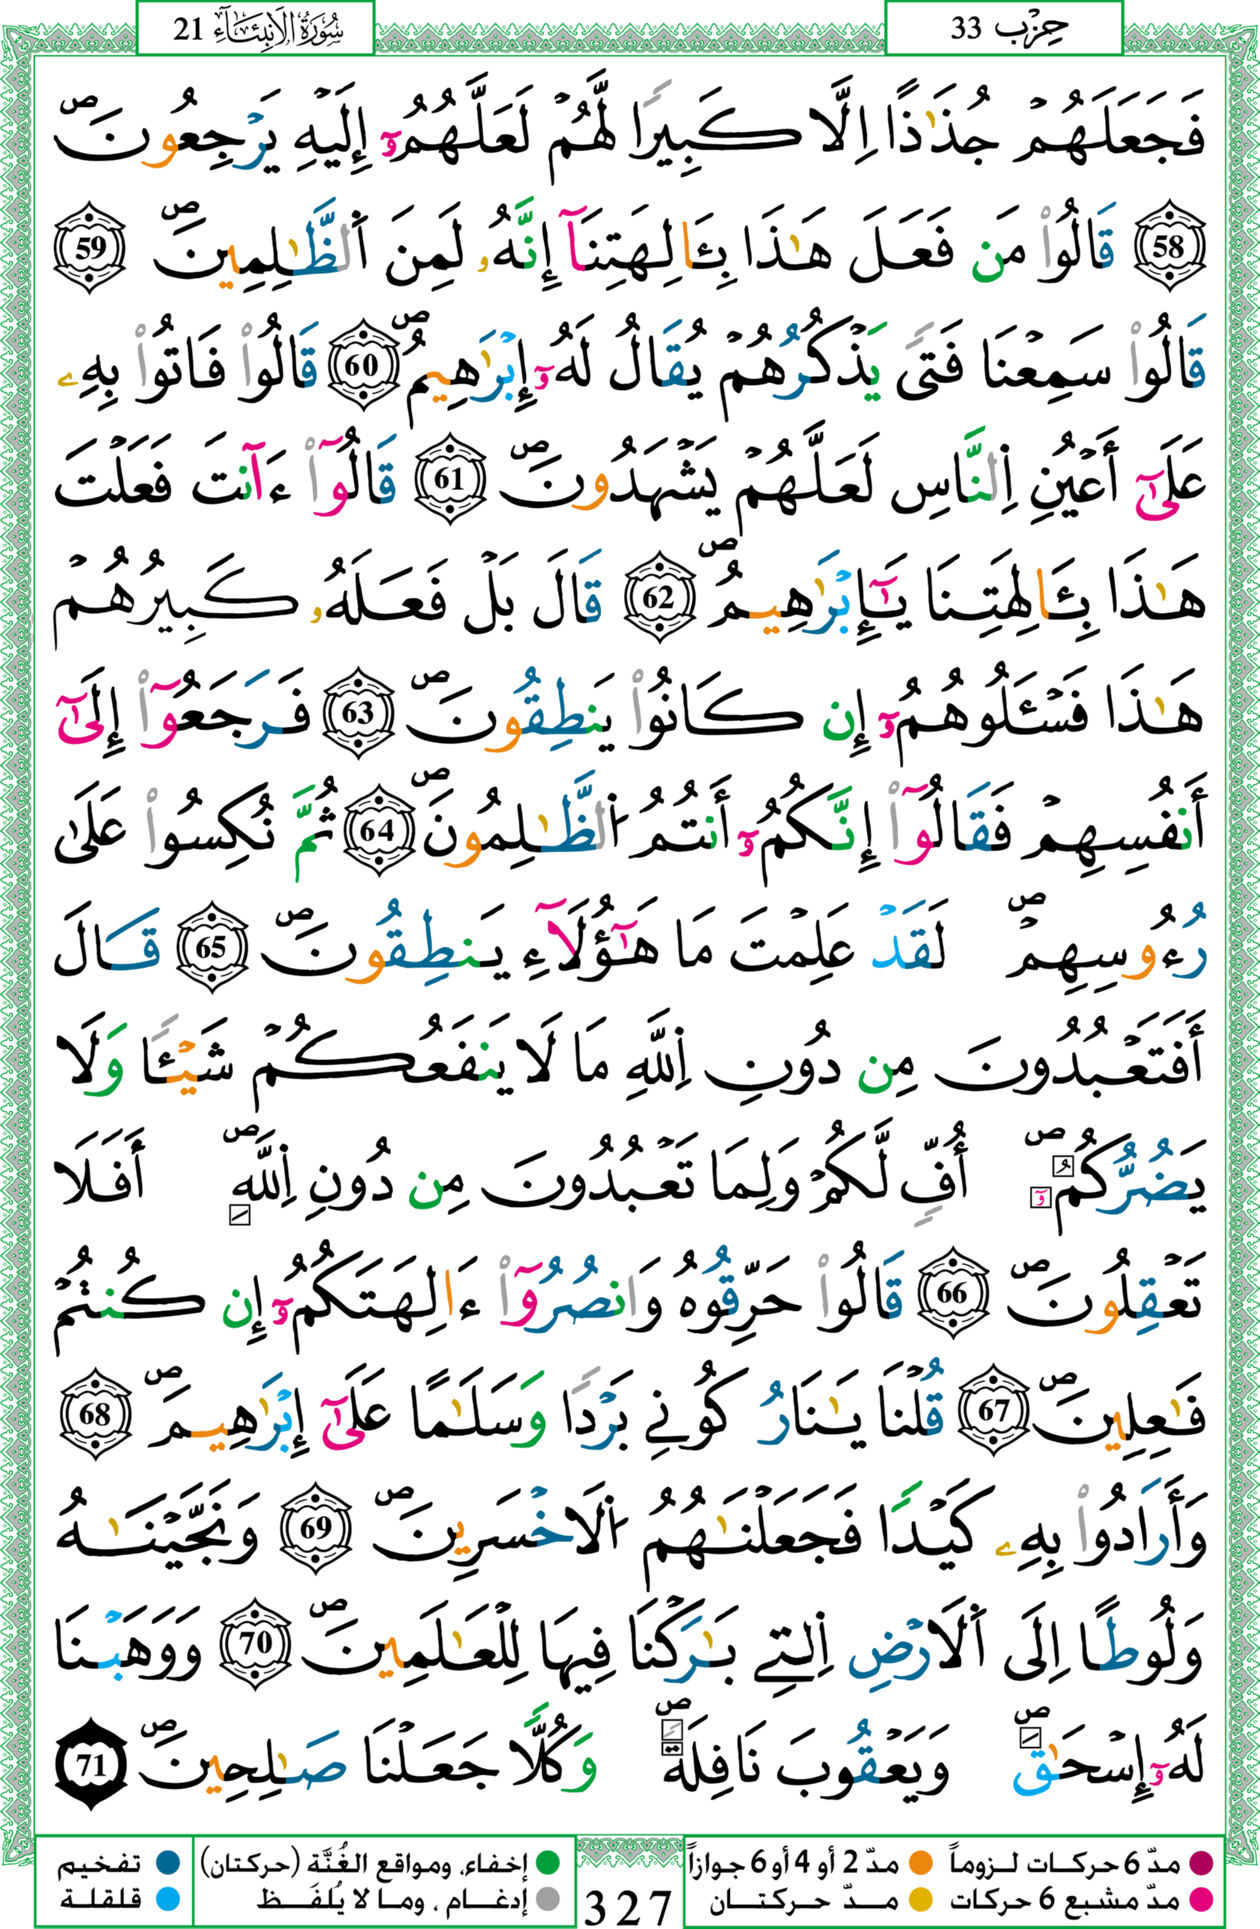 سُورَةُ الْأَنْبِيَاءِ 21
حِزْب 33
فَجَعَلَهُمْ جُذَٰذًا اِلَّا كَبِيرًا لَّهُمْ لَعَلَّهُمُۥٓ إِلَيْهِ يَرْجِعُونَۖ
58 قَالُواْ مَن فَعَلَ هَٰذَا بِـَٔالِهَتِنَآ إِنَّهُۥ لَمِنَ اَ۬لظَّٰلِمِينَۖ 59
قَالُواْ سَمِعْنَا فَتىً يَذْكُرُهُمْ يُقَالُ لَهُۥٓ إِبْرَٰهِيمُۖ 60 قَالُواْ فَاتُواْ بِهِۦ
عَلَىٰٓ أَعْيُنِ اِ۬لنَّاسِ لَعَلَّهُمْ يَشْهَدُونَۖ 61 قَالُوٓاْ ءَآنتَ فَعَلْتَ
هَٰذَا بِـَٔالِهَتِنَا يَٰٓإِبْرَٰهِيمُۖ 62 قَالَ بَلْ فَعَلَهُۥ كَبِيرُهُمْ
هَٰذَا فَسْـَٔلُوهُمُۥٓ إِن كَانُواْ يَنطِقُونَۖ 63 فَرَجَعُوٓاْ إِلَىٰٓ
أَنفُسِهِمْ فَقَالُوٓاْ إِنَّكُمُۥٓ أَنتُمُ اُ۬لظَّٰلِمُونَۖ 64 ثُمَّ نُكِسُواْ عَلَىٰ
رُءُوسِهِمْۖ لَقَدْ عَلِمْتَ مَا هَٰٓؤُلَآءِ يَنطِقُونَۖ 65 قَالَ
أَفَتَعْبُدُونَ مِن دُونِ اِ۬للَّهِ مَا لَا يَنفَعُكُمْ شَيْـًٔا وَلَا
يَضُرُّكُمُۥٓۖ أُفٍّ لَّكُمْ وَلِمَا تَعْبُدُونَ مِن دُونِ اِ۬للَّهِۖ أَفَلَا
تَعْقِلُونَۖ 66 قَالُواْ حَرِّقُوهُ وَانصُرُوٓاْ ءَالِهَتَكُمُۥٓ إِن كُنتُمْ
فَٰعِلِينَۖ 67 قُلْنَا يَٰنَارُ كُونِے بَرْدًا وَسَلَٰمًا عَلَىٰٓ إِبْرَٰهِيمَۖ 68
وَأَرَادُواْ بِهِۦ كَيْدًا فَجَعَلْنَٰهُمُ اُ۬لَاخْسَرِينَۖ 69 وَنَجَّيْنَٰهُ
وَلُوطًا اِلَى اَ۬لَارْضِ اِ۬لتِے بَٰرَكْنَا فِيهَا لِلْعَٰلَمِينَۖ 70 وَوَهَبْنَا
لَهُۥٓ إِسْحَٰقَۖ وَيَعْقُوبَ نَافِلَةًۖ وَكُلًّا جَعَلْنَا صَٰلِحِينَۖ 71
مدّ 6 حركات لـزوماً مدّ 2 أو 4 أو 6 جوازاً
مدّ مشبع 6 حركات مـدّ حـركتـان
327
إخفاء، ومواقع الغُنَّة (حركتان) تفخيم
إدغـام ، ومـا لا يُلفَـظ قلقلـة